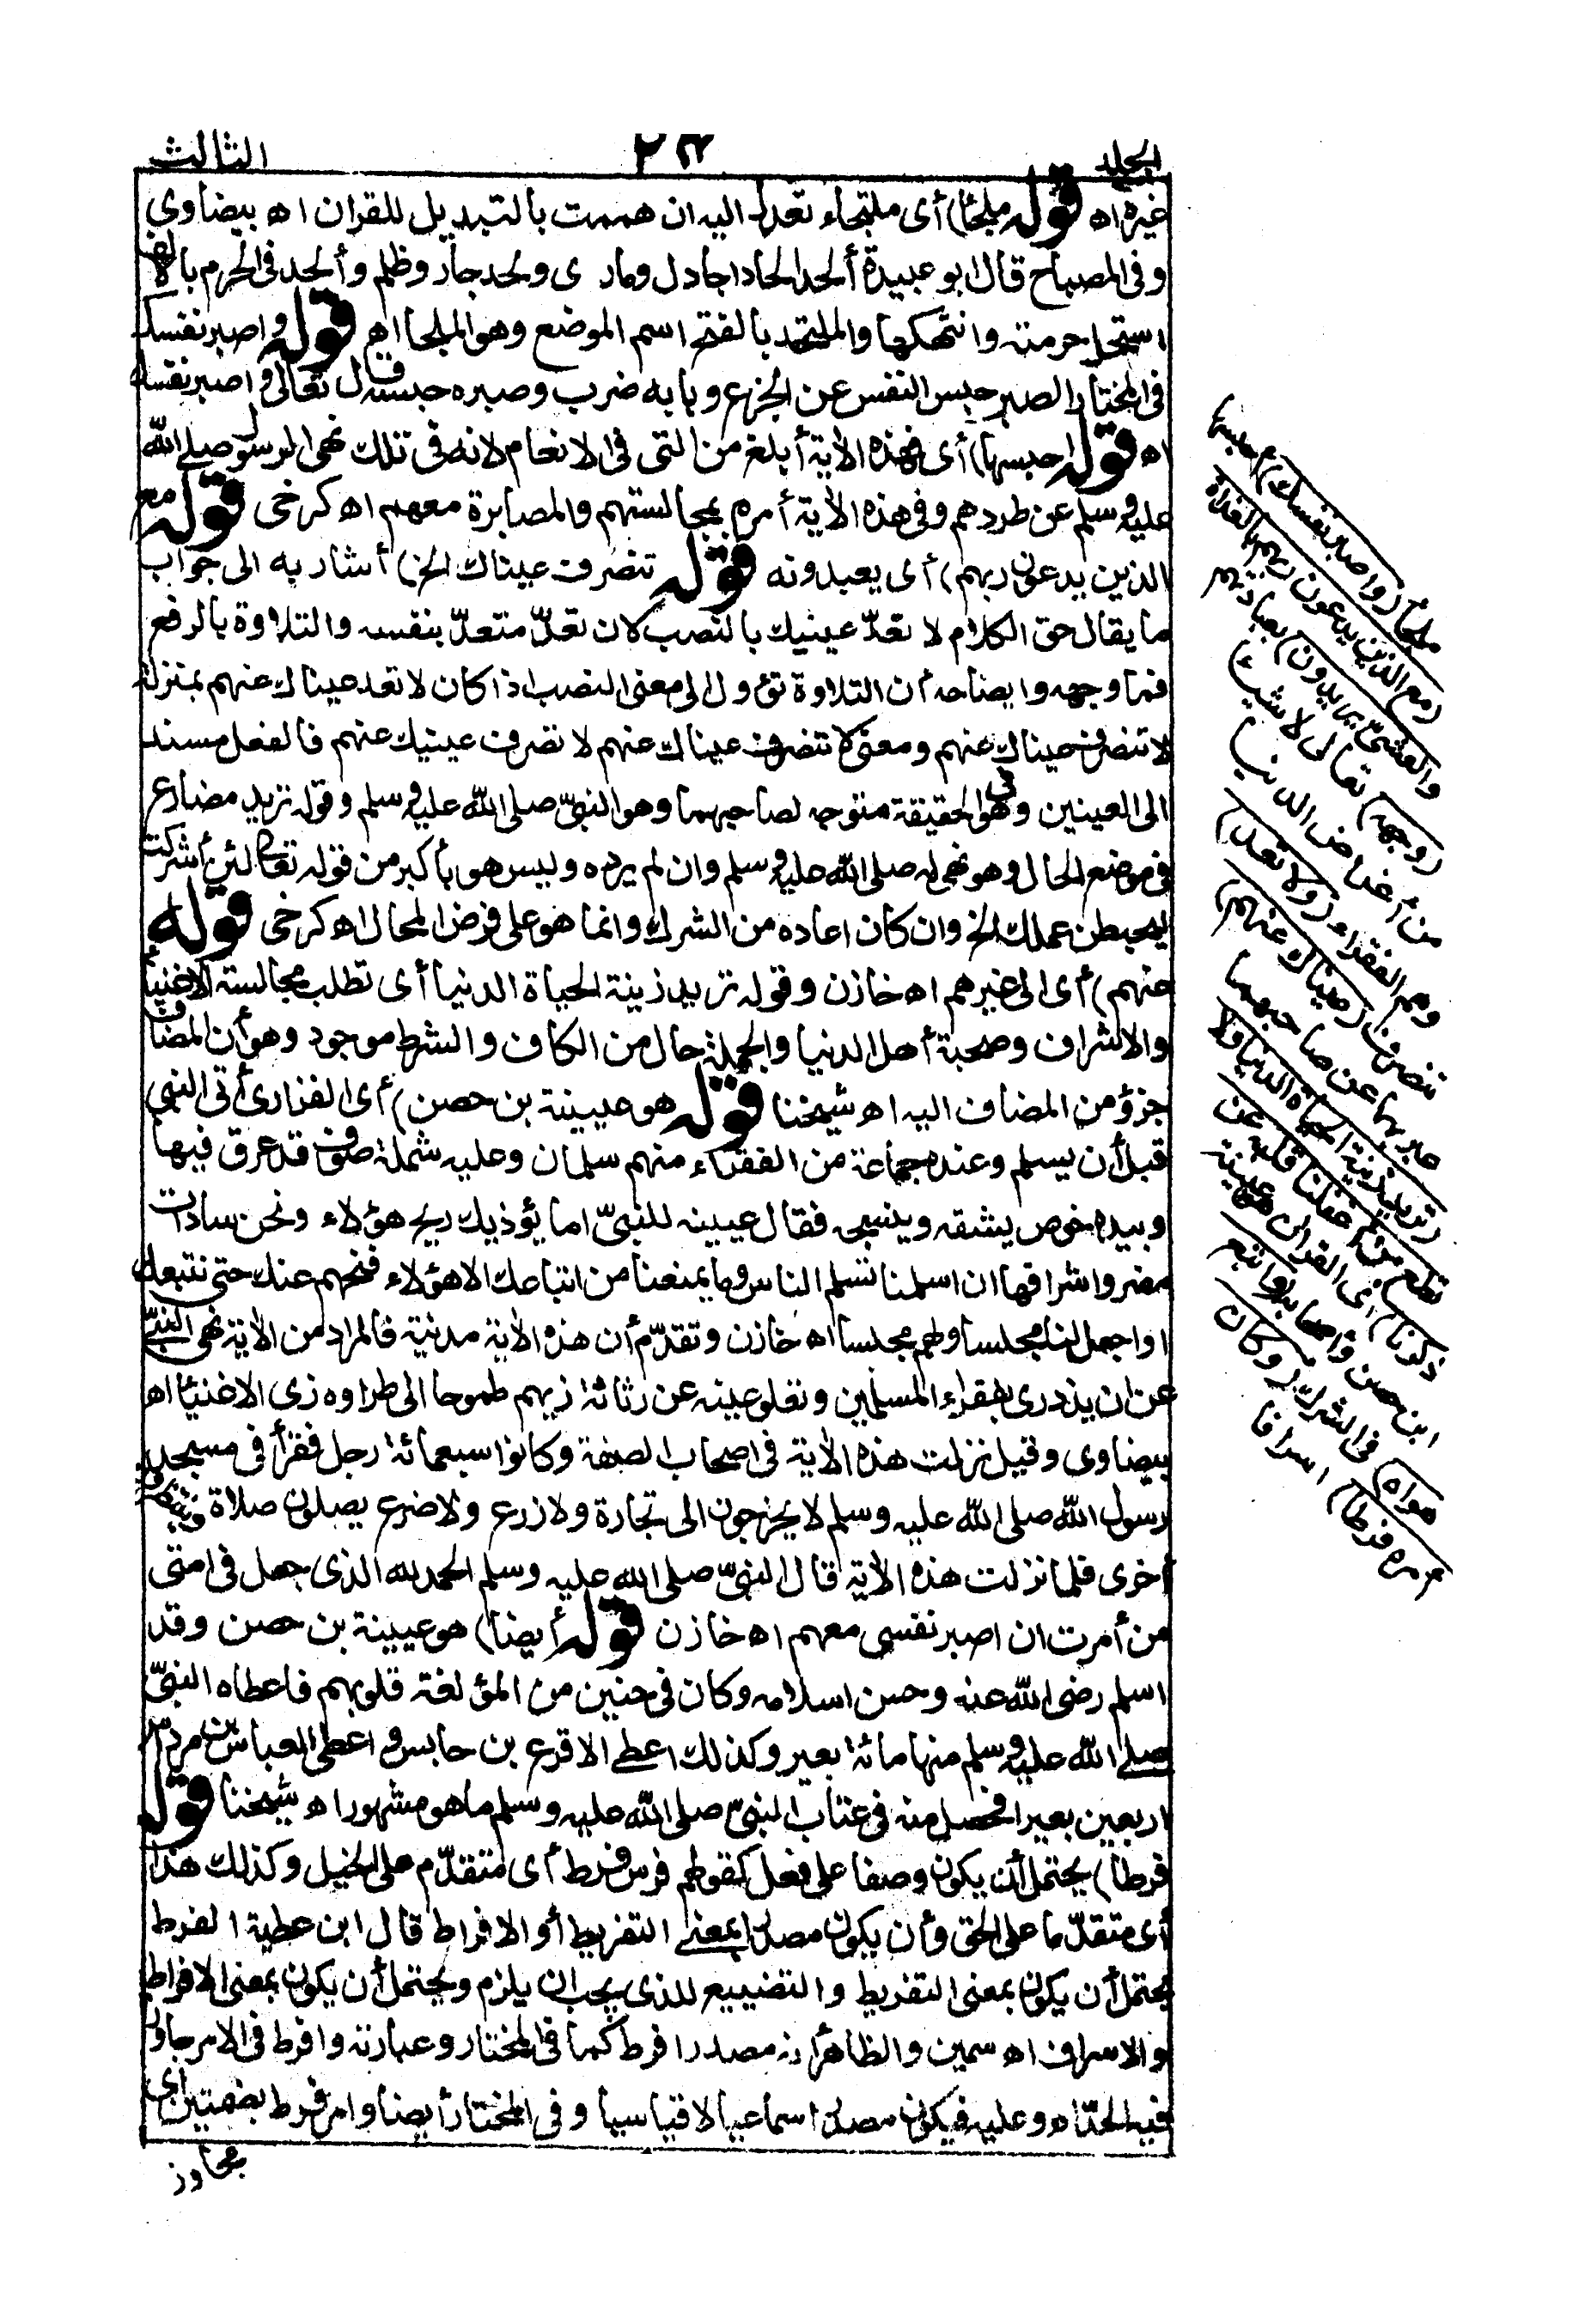 الجلد ٢٣ الثالث
غيره اه قوله ملجأ) أى ملتجاء تعدل اليه ان هممت بالتبديل للقران اه بيضاوي
وفى المصباح قال ابو عبيدة ألحد الحادا جادل ومارى ولحد جار وظلم وألحد فى الحرم بالالف
استحل حرمته وانتهكها والملتحد بالفتح اسم الموضع وهو الملجا اه قوله واصبر نفسك
فى المختار الصبر حبس النفس عن الجزع وبابه ضرب وصبره حبسه قال تعالى واصبر نفسك
اه قوله احبسها) أى فهذه الأية أبلغ من التى فى الانعام لانه فى تلك نهى الرسول صلى الله
عليه وسلم عن طردهم وفى هذه الأية أمره بمجالستهم والمصابرة معهم اه كرخى قوله مع
الذين يدعون ربهم) أى يعبدونه قوله تنصرف عيناك الخ) أشار به الى جواب
ما يقال حق الكلام لا تعدّ عينيك بالنصب لان تعدّ متعدّ بنفسه والتلاوة بالرفع
فما وجهه وايضاحه أن التلاوة تؤول الى معنى النصب اذا كان لا تعد عيناك عنهم بمنزلة
لا تنصرف عيناك عنهم ومعنى لا تنصرف عيناك عنهم لا تصرف عينيك عنهم فالفعل مسند
الى العينين وهو فى الحقيقة متوجه لصاحبهما وهو النبىّ صلى الله عليه وسلم وقوله تريد مضارع
فى موضع الحال وهو نهى له صلى الله عليه وسلم وان لم يرده وليس هو بأكبر من قوله تعالى لئن أشركت
ليحبطن عملك الخ وان كان اعاده من الشرك وانما هو على فرض المحال اه كرخى قوله
عنهم) أى الى غيرهم اه خازن وقوله تريد زينة الحياة الدنيا أى تطلب مجالسة الاغنياء
والاشراف وصحبة أهل الدنيا والجملة حال من الكاف والشرط موجود وهو أن المضاف
جزؤ من المضاف اليه اه شيخنا قوله هو عيينة بن حصن) أى الفزارى أتى النبى
قبل أن يسلم وعنده جماعة من الفقراء منهم سلمان وعليه شملة صوف قد عرق فيها
وبيده خوص يشقه وينسجه فقال عيينه للنبىّ اما يؤذيك ريح هؤلاء ونحن سادات
مضر واشرافها ان اسلمنا تسلم الناس وما يمنعنا من اتباعك الا هؤلاء فنحهم عنك حتى نتبعك
او اجعل لنا مجلسا ولهم مجلسا اه خازن وتقدّم أن هذه الأية مدنية فالمراد من الأية نهى النبىّ
عن ان يزدرى بفقراء المسلمين وتعلو عينه عن رثاثة زيهم طموحا الى طراوه زى الاغنياء اه
بيضاوى وقيل نزلت هذه الأية فى اصحاب الصفة وكانوا سبعمائة رجل فقرأ فى مسجد
رسول الله صلى الله عليه وسلم لا يخرجون الى تجارة ولا زرع ولا ضرع يصلون صلاة وينتظرون
أخرى فلما نزلت هذه الأية قال النبىّ صلى الله عليه وسلم الحمد لله الذى جعل فى امتى
من أمرت ان اصبر نفسى معهم اه خازن قوله أيضا) هو عيينة بن حصن وقد
اسلم رضى الله عنه وحسن اسلامه وكان فى حنين من المؤلفة قلوبهم فاعطاه النبىّ
صلى الله عليه وسلم منها مائة بعير وكذلك اعطى الاقرع بن حابس واعطى العباس بن مرداس
اربعين بعيرا فحصل منه فى عتاب النبىّ صلى الله عليه وسلم ما هو مشهور اه شيخنا قوله
فرطا) يحتمل أن يكون وصفا على فعل كقولهم فرس فرط أى متقدّم على الخيل وكذلك هذا
أى متقدّما على الحق وأن يكون مصدرا بمعنى التفريط أو الافراط قال ابن عطية الفرط
يحتمل أن يكون بمعنى التفريط والتضييع للذى يجب ان يلزم ويحتمل أن يكون بمعنى الافراط
والاسراف اه سمين والظاهر أنه مصدر افرط كما فى المختار وعبارته وافرط فى الامر جاوز
فيه الحدّ اه وعليه فيكون مصدرا سماعيا لا قياسيا وفى المختار أيضا وامر فرط بضمتين أى
مجاوز
ملجأ (واصبر نفسك) احبسها
(مع الذين يدعون ربهم بالغداة
والعشىّ يريدون) بعبادتهم
(وجهه) تعالى لا شيئا
من أغراض الدنيا
وهم الفقراء (ولا تعد)
تنصرف (عيناك عنهم)
عبر بهما عن صاحبهما
(تريد زينة الحياة الدنيا ولا
تطع من اغفلنا قلبه عن
ذكرنا) أى القرآن هو عيينة
ابن حصن واصحابه (واتبع
هواه) فى الشرك (وكان
أمره فرطا) اسرافا